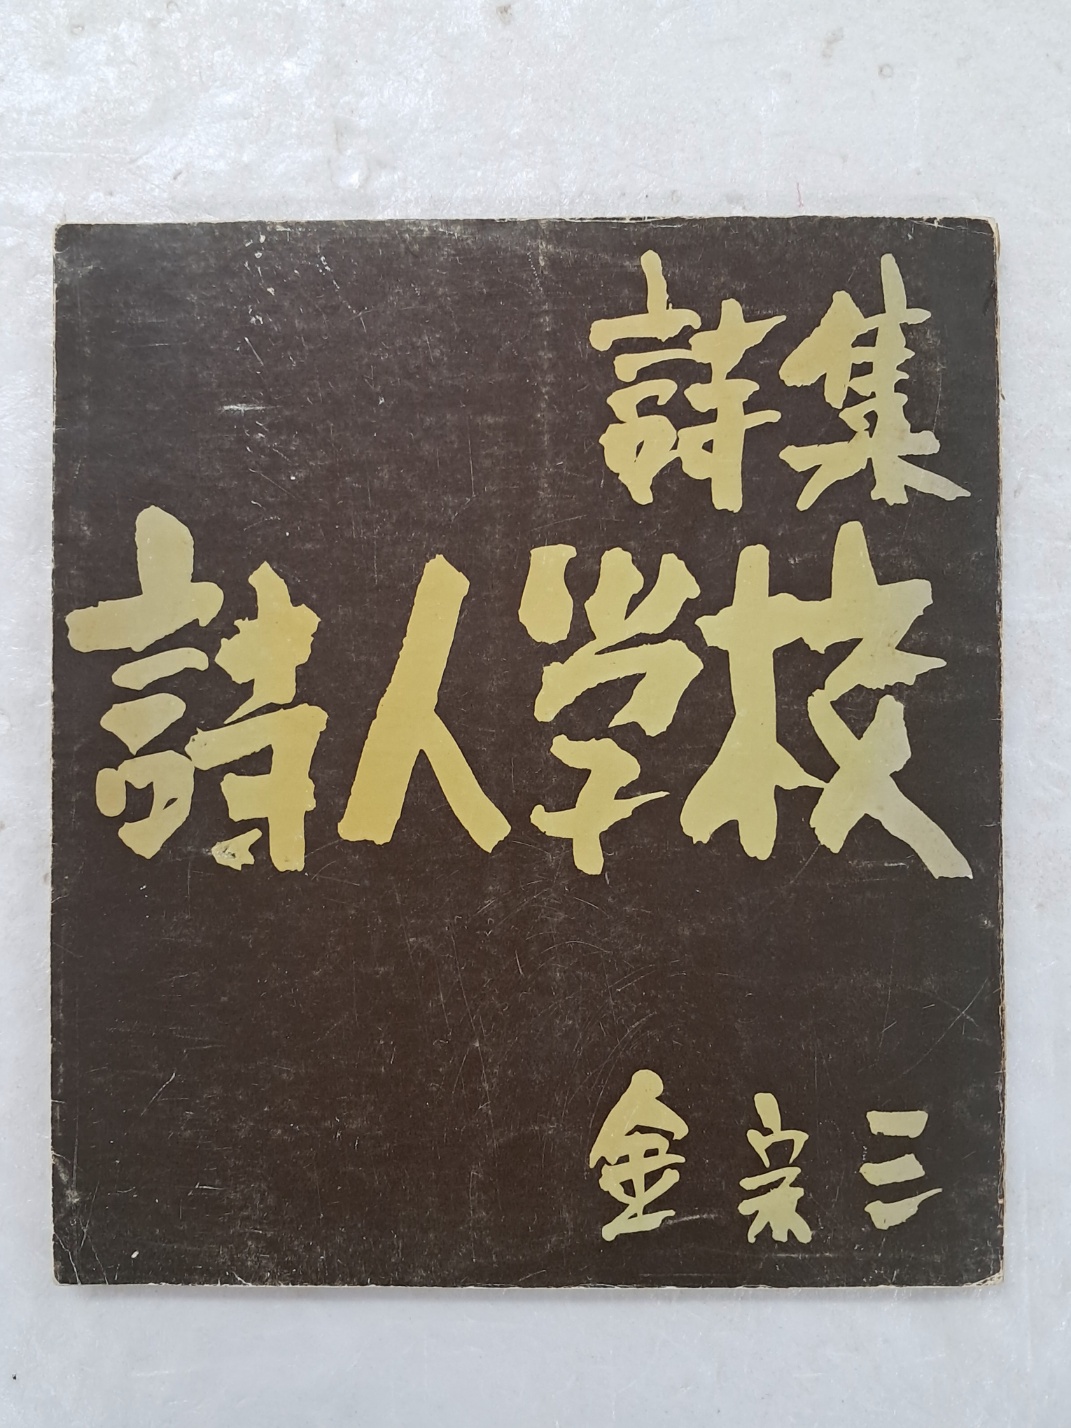 詩集
詩人学校
金宗三